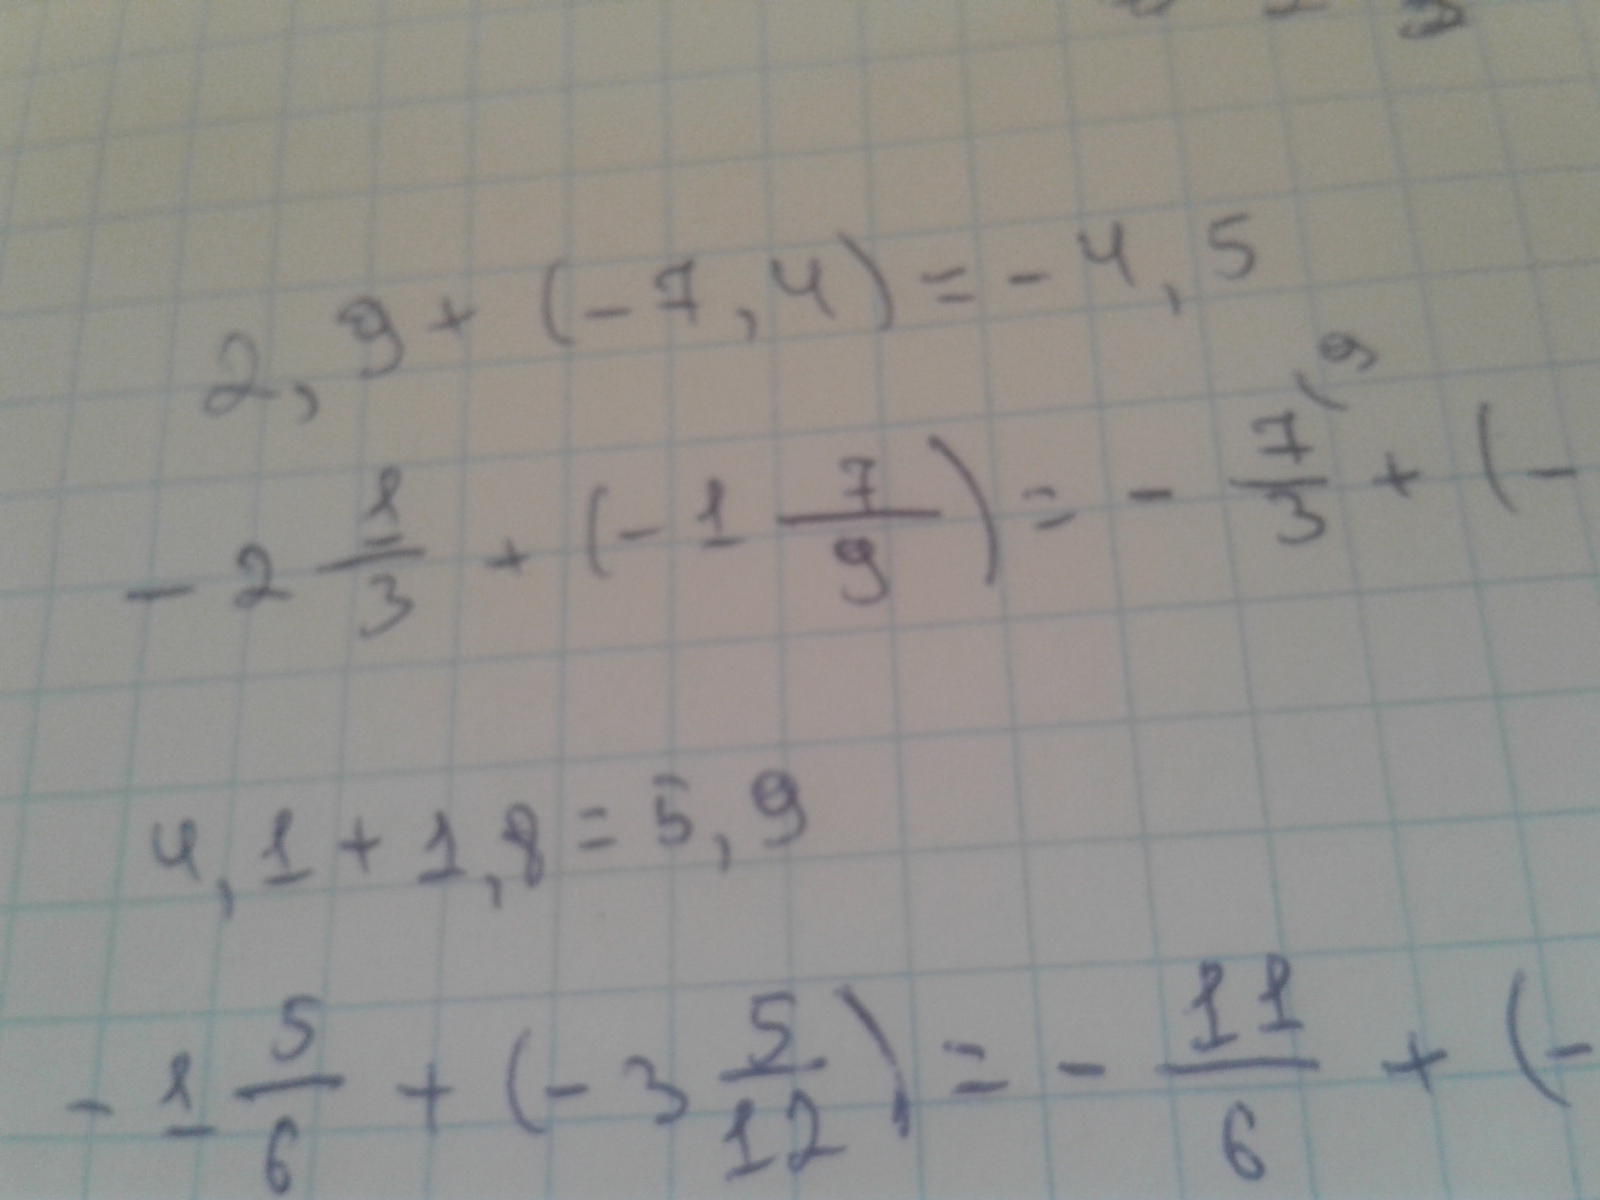 2,9 + (-7,4) = -4,5
-2 1/3 + (-1 7/9) = - 7/3 (9 + (-
4,1 + 1,8 = 5,9
-1 5/6 + (-3 5/12) = - 11/6 + (-